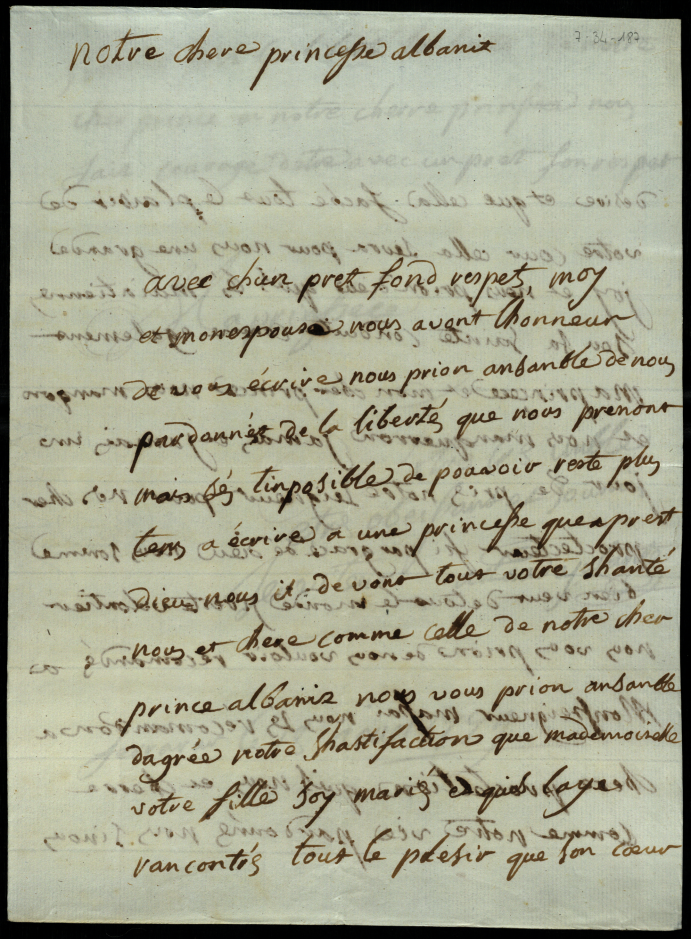 7-34-187
notre chere princesse albanit
avec chien pret fond respet, moy
et mon espouse nous avont lhonneur
de vous écrire nous prion ansanble de nous
pardonnés de la libertés que nous prenont
mais sés tinposible de pouvoir reste plus
tems a écrire a une princesse que aprest
Dieu nous it devont tout votre shanté
nous et chere comme celle de notre cher
prince albanis nous vous prion ansanble
dagrée notre shastifaction que mademoiselle
votre fille soy mariés et quel laye
rancontrés tout le plesir que son cœur